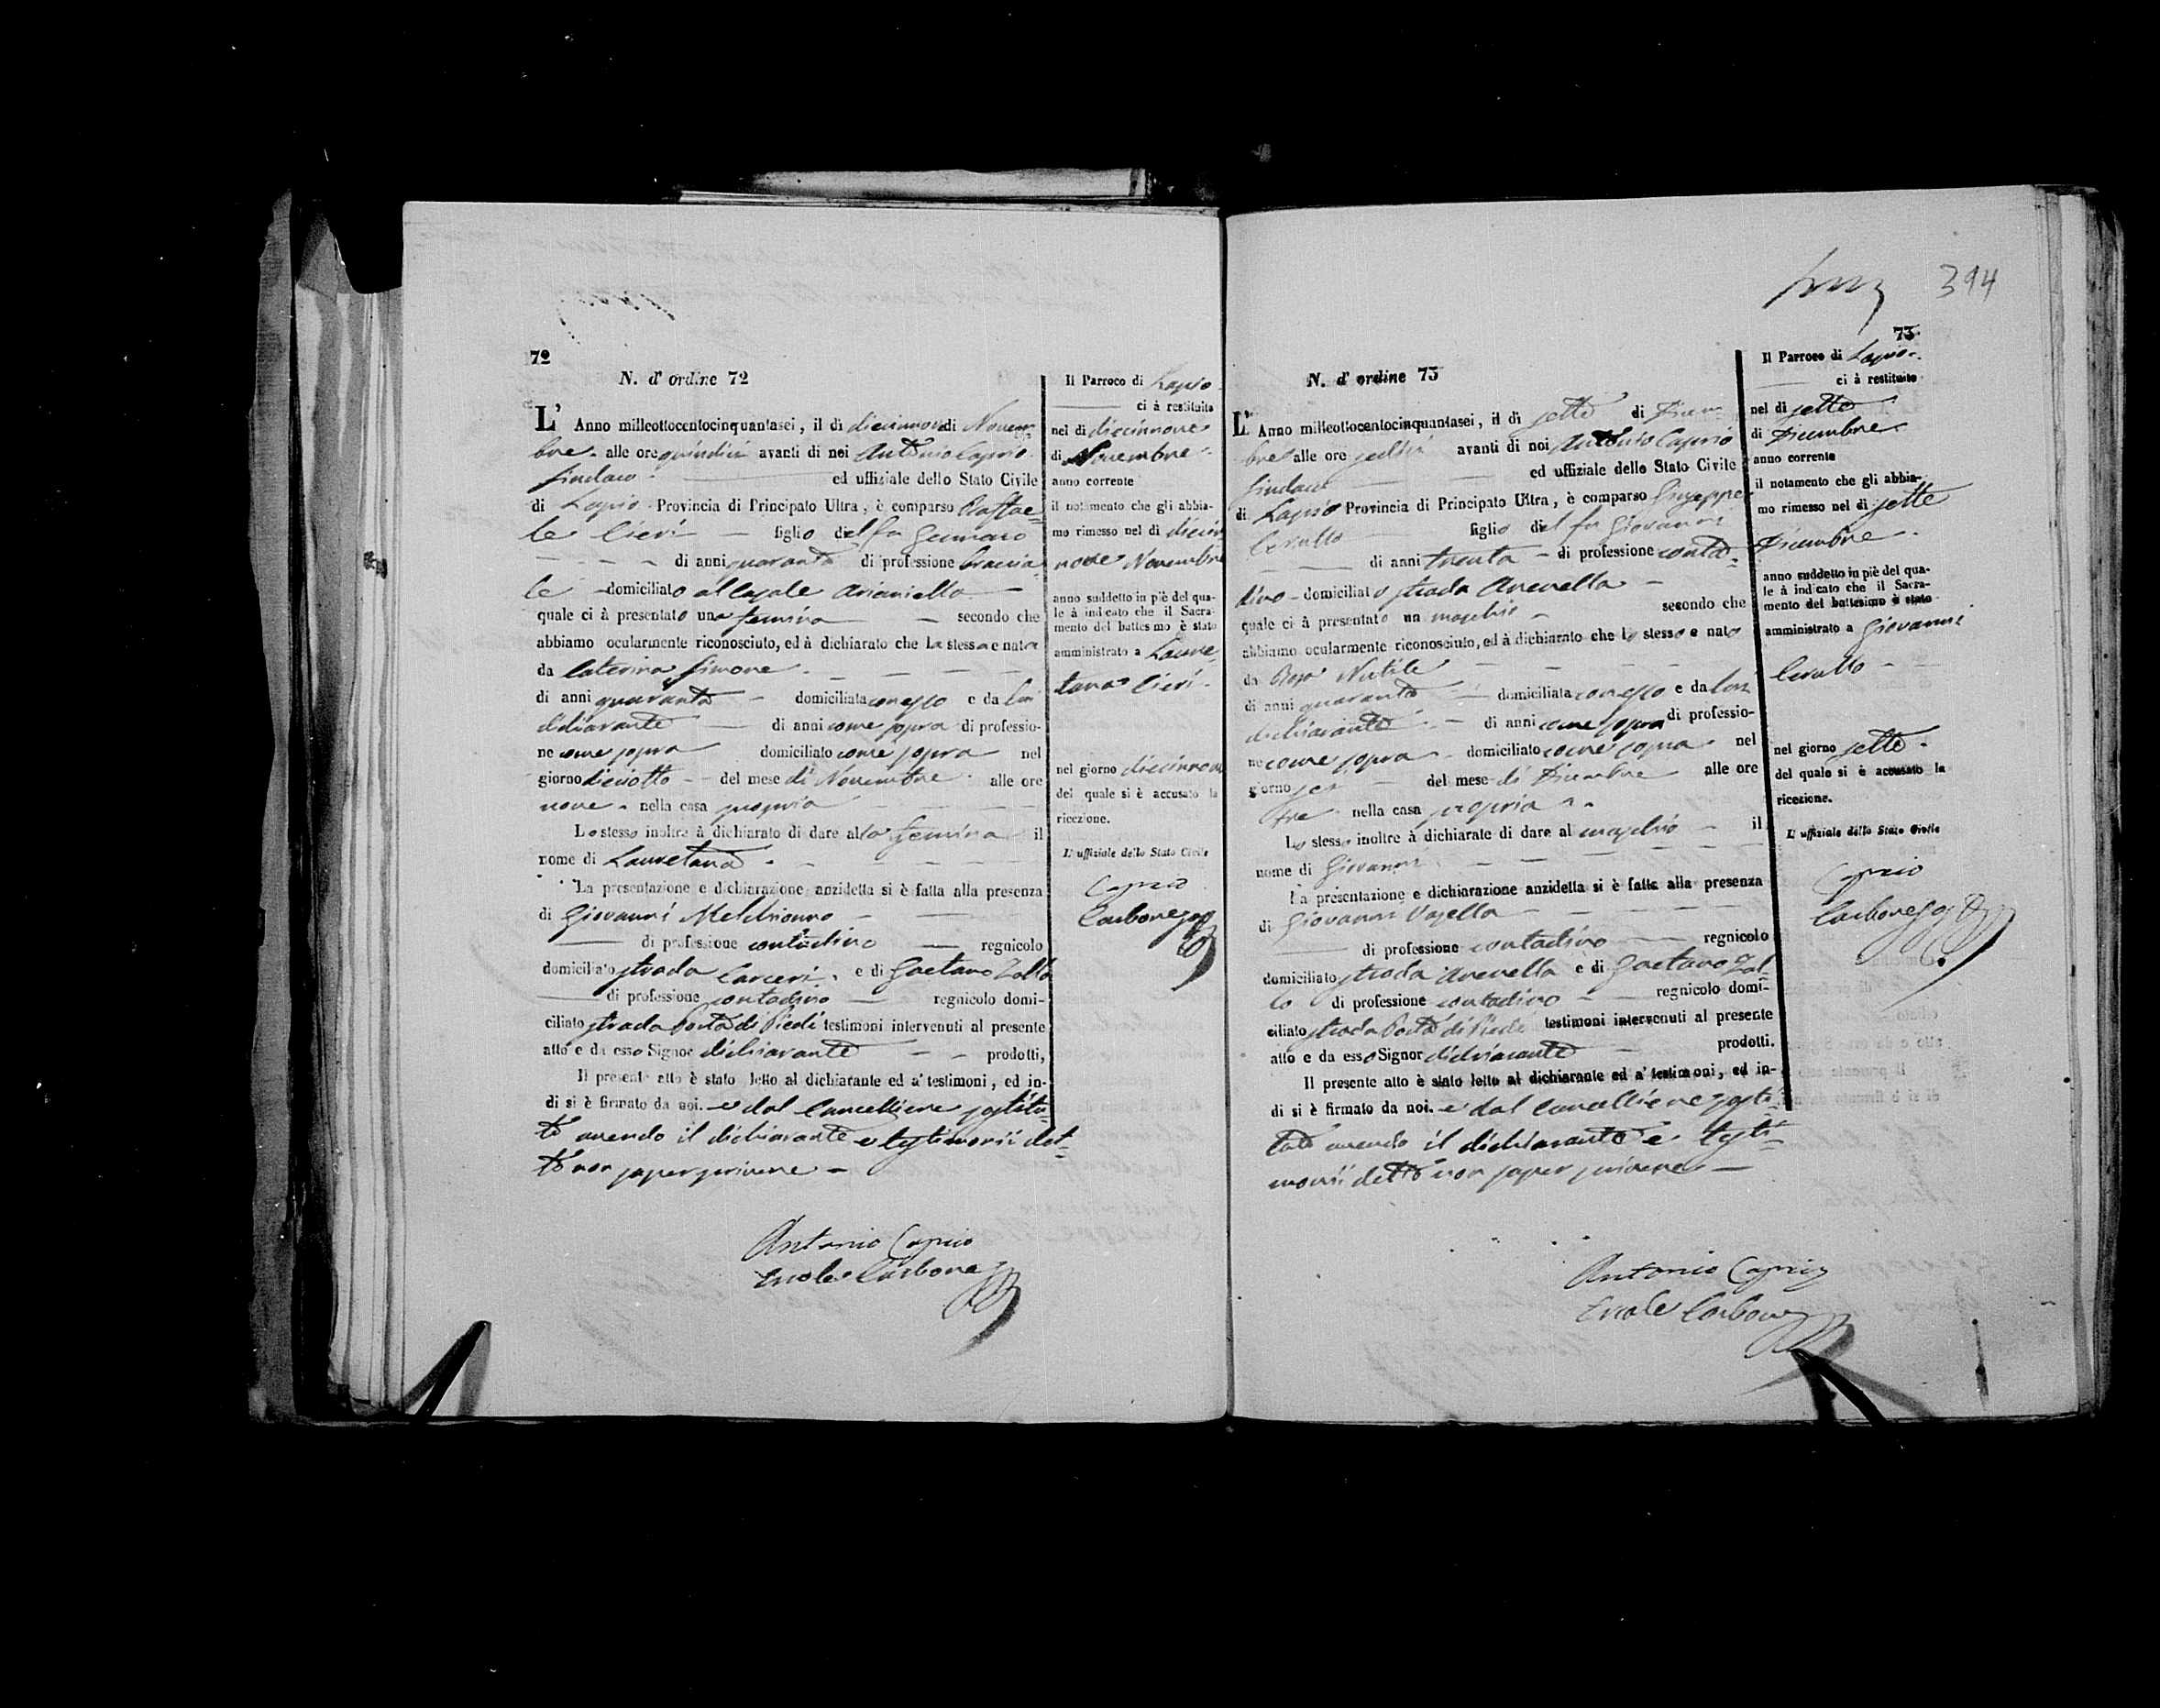 72
N. d' ordine 72
L' Anno milleottocentocinquantasei, il di diecinnove di Novem-
bre alle ore quindici avanti di noi Antonio Caprio
Sindaco ed uffiziale dello Stato Civile
di Lapio Provincia di Principato Ultra, è comparso Raffae-
le Cieri figlio del fu Gennaro
di anni quaranta di professione braccia-
le domiciliato al Casale Arianiello
quale ci à presentato una femina secondo che
abbiamo ocularmente riconosciuto, ed à dichiarato che la stessa e nata
da Caterina Simone
di anni quaranta domiciliata con esso e da lui
dichiarante di anni come sopra di professio-
ne come sopra domiciliato come sopra nel
giorno dieciotto del mese di Novembre alle ore
nove nella casa propria
Lo stesso inoltre à dichiarato di dare alla femina il
nome di Lauretana
La presentazione e dichiarazione anzidetta si è fatta alla presenza
di Giovanni Melchionno
di professione contadino regnicolo
domiciliato strada Carceri e di Gaetano Zollo
di professione contadino regnicolo domi-
ciliato strada Porta di Piedi testimoni intervenuti al presente
atto e da esso Signor dichiarante prodotti,
Il presente atto è stato letto al dichiarante ed a' testimoni, ed in-
di si è firmato da noi. e dal Cancelliere sostitu-
to avendo il dichiarante e testimonii det-
to non saper scrivere
Antonio Caprio
Ercole Carbone
Il Parroco di Lapio
ci à restituito
nel di diecinnove
di Novembre
anno corrente
il notamento che gli abbia-
mo rimesso nel di diecin
nove Novembre
anno suddetto in piè del qua-
le à indicato che il Sacra-
mento del battesimo è stato
amministrato a Laure-
tana Cieri
nel giorno diecinnove
del quale si è accusato la
ricezione.
L' uffiziale dello Stato Civile
Caprio
Carbone
394
73
N. d' ordine 73
L' Anno milleottocentocinquantasei, il di sette di Dicem-
bre alle ore avanti di noi Antonio Caprio
Sindaco ed uffiziale dello Stato Civile
di Lapio Provincia di Principato Ultra, è comparso Giuseppe
Cerullo figlio del fu Giovanni
di anni trenta di professione conta-
dino domiciliato strada Arenella
quale ci à presentato un maschio secondo che
abbiamo ocularmente riconosciuto, ed à dichiarato che lo stesso e nato
da Rosa Nutile
di anni quaranta domiciliata con esso e da lui
dichiarante di anni come sopra di professio-
ne come sopra domiciliato come sopra nel
giorno sei del mese di Dicembre alle ore
tre nella casa propria
Lo stesso inoltre à dichiarato di dare al maschio il
nome di Giovanni
La presentazione e dichiarazione anzidetta si è fatta alla presenza
di Giovanni Vasella
di professione contadino regnicolo
domiciliato strada Arenella e di Gaetano Zol-
lo di professione contadino regnicolo domi-
ciliato strada Porta di Piedi testimoni intervenuti al presente
atto e da esso Signor dichiarante prodotti.
Il presente atto è stato letto al dichiarante ed a' testimoni, ed in-
di si è firmato da noi. e dal Cancelliere sosti-
tuto avendo il dichiarante e testi-
monii detto non saper scrivere
Antonio Caprio
Ercole Carbone
Il Parroco di Lapio
ci à restituito
nel di sette
di Dicembre
anno corrente
il notamento che gli abbia-
mo rimesso nel di sette
Dicembre
anno suddetto in piè del qua-
le à indicato che il Sacra-
mento del battesimo è stato
amministrato a Giovanni
Cerullo
nel giorno sette
del quale si è accusato la
ricezione.
L' uffiziale dello Stato Civile
Caprio
Carbone